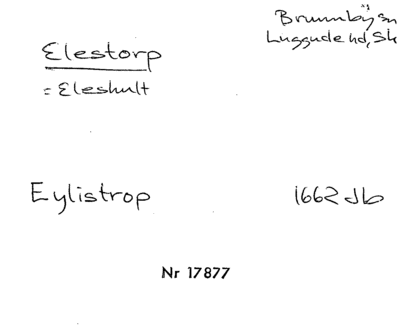 Elestorp
Brunnby sn
= Eleshult
Luggude hd, Sk
Eylistrop
1662 Jb
Nr 17877